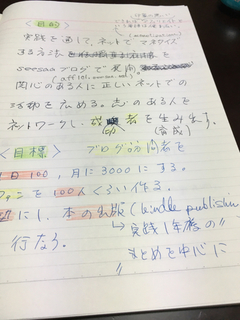 <目的>
実践を通して、ネットでマネタイズ
する方法
seesaaブログで
関心のある人に正しいネットでの
活動を広める。志のある人を
ネットワークし、成功者を生み出す。
(育成)
<目標> ブログ訪問者を
1日100、月に3000にする。
ファンを100人くらい作る。
に1、本の出版(kindle publishin
行なう。
→実践1年後の〃
まとめを中心に
〃